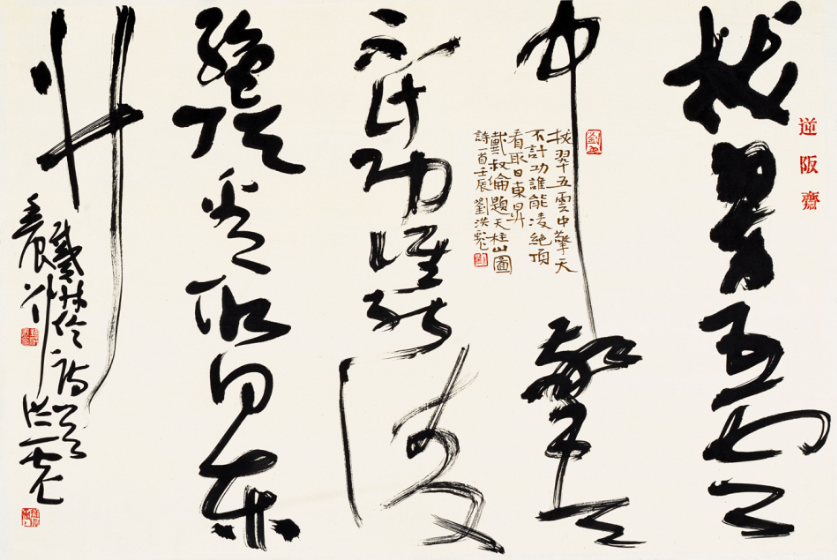 逆阪齋
拔翠五雲
中擎天
拔翠五雲中擎天
不計功誰能凌絕頂
看取日東昇
戴叔倫題天柱山圖
詩一首壬辰劉洪彪
不計功誰能凌
絕頂看取日東
升
戴叔倫詩一首
壬辰劉洪彪